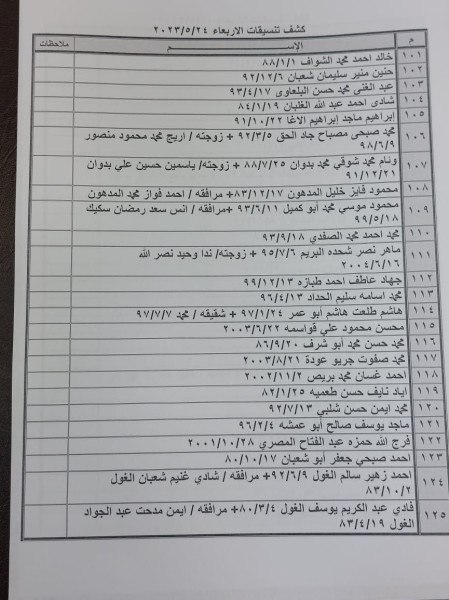 كشف تنسيقات الاربعاء ٢٠٢٣/٥/٢٤
م الإســـم ملاحظات
١٠١ خالد احمد محمد الشواف ٨٨/١/١
١٠٢ حنين منير سليمان شعبان ٩٢/١٢/٦
١٠٣ عبد الغنى محمد حسن البلعاوى ٩٣/٤/١٧
١٠٤ شادى احمد عبد الله الغلبان ٨٤/١/١٩
١٠٥ إبراهيم ماجد إبراهيم الاغا ٩١/١٠/٢٢
١٠٦ محمد صبحى مصباح جاد الحق ٩٢/٣/٥ + زوجته / اريج محمد محمود منصور
٩٨/٦/٩
١٠٧ ونام محمد شوقي محمد بدوان ٨٨/٧/٢٥ + زوجته/ ياسمين حسين علي بدوان
٩١/١٢/٢١
١٠٨ محمود فايز خليل المدهون ٨٣/١٢/١٧+ مرافقه / احمد فواز محمد المدهون
١٠٩ محمود موسي محمد أبو كميل ٩٣/٦/١١ +مرافقة / انس سعد رمضان سكيك
٩٩/٥/١٨
١١٠ محمد احمد محمد الصفدي ٩٣/٩/١٨
١١١ ماهر نصر شحده البريم ٩٥/٧/٦ + زوجته/ ندا وحيد نصر الله
٢٠٠٤/٦/١٦
١١٢ جهاد عاطف احمد طبازه ٩٩/١٢/١٣
١١٣ محمد اسامه سليم الحداد ٩٦/٤/١٣
١١٤ هاشم طلعت هاشم أبو عمر ٩٧/١/٢٤ + شقيقه / محمد ٩٧/٧/٧
١١٥ محسن محمود علي قواسمه ٢٠٠٣/٦/٢٢
١١٦ محمد حسن محمد أبو شرف ٨٦/٩/٢٠
١١٧ محمد صفوت جريو عودة ٢٠٠٣/٨/٢١
١١٨ احمد غسان محمد بريص ٢٠٠٢/١١/٢
١١٩ اياد نايف حسن طعميه ٨٢/١/٢٥
١٢٠ محمد ايمن حسن شلبي ٩٢/٧/١٣
١٢١ ماجد يوسف صالح أبو عمشه ٩٦/٢/٤
١٢٢ فرج الله حمزه عبد الفتاح المصري ٢٠٠١/١٠/٢٨
١٢٣ احمد صبحي جعفر أبو شعبان ٨٠/١٠/١٧
١٢٤ احمد زهير سالم الغول ٩٢/٦/٩+ مرافقه / شادي غنيم شعبان الغول
٨٣/١٠/٢
١٢٥ فادي عبد الكريم يوسف الغول ٨٠/٣/٤+ مرافقه / ايمن مدحت عبد الجواد
الغول ٨٣/٤/١٩